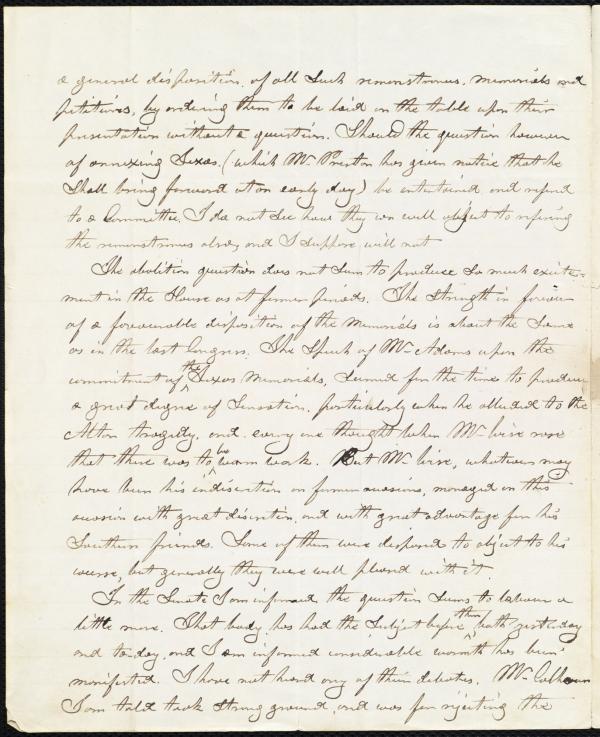 a general disposition, of all such remonstrances, memorials and
petitions, by ordering them to be laid on the table upon their
presentation without a question. Should the question however
of annexing Texas, (which Mr. Preston has given notice that he
shall bring forward at an early day) be entertained and referred
to a Committee, I do not see how they can well object to refering
the remonstrances also, and I suppose will not
The abolition question does not seem to produce so much excite-
ment in the House as at former periods. The strength in favour
of a favourable disposition of the Memorials is about the same
as in the last Congress. The Speech of Mr. Adams upon the
commitment of the Texas Memorials, seemed for the time to produce
a great degree of sensation, particularly when he alluded to the
Alton tragedy, and every one thought when Mr Wise rose
that there was to be warm work. But Mr Wise, whatever may
have been his indiscretion on former occasions, managed on this
occasion with great discretion, and with great advantage for his
Southern friends. Some of them were disposed to object to his
course, but generally they were well pleased with it.
In the Senate I am informed the question seems to labour a
little more. That body has had the subject before them both yesterday
and to-day, and I am informed considerable warmth has been
manifested. I have not heard any of their debates. Mr. Calhoun
I am told took strong ground, and was for rejecting the